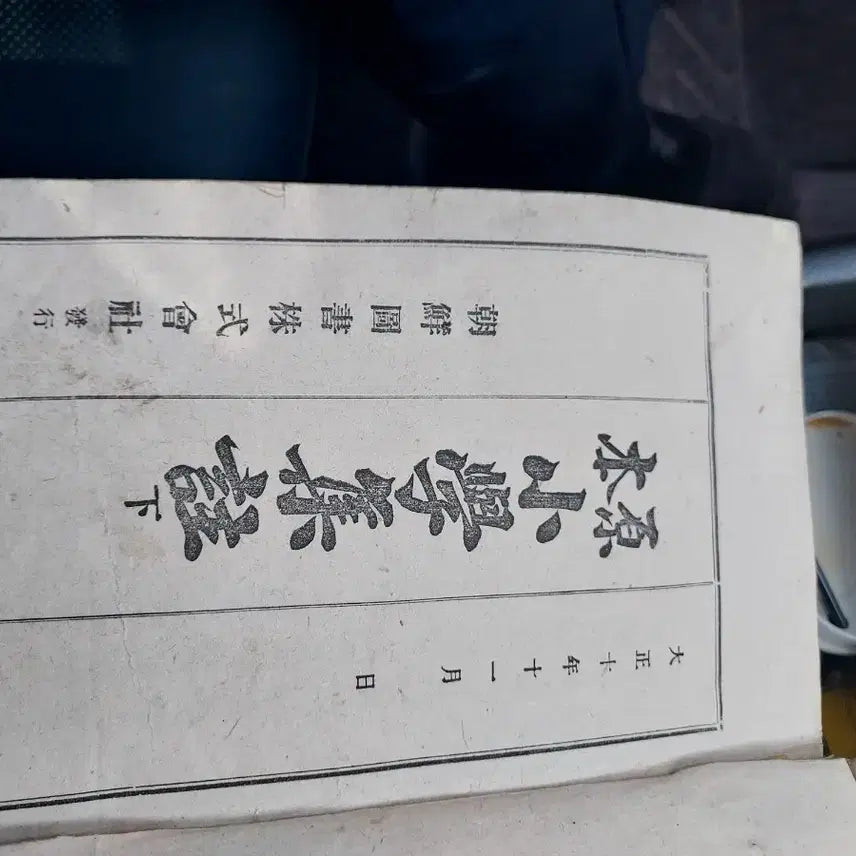 大正十年十一月 日
原本小學集註 下
朝鮮圖書株式會社 發行